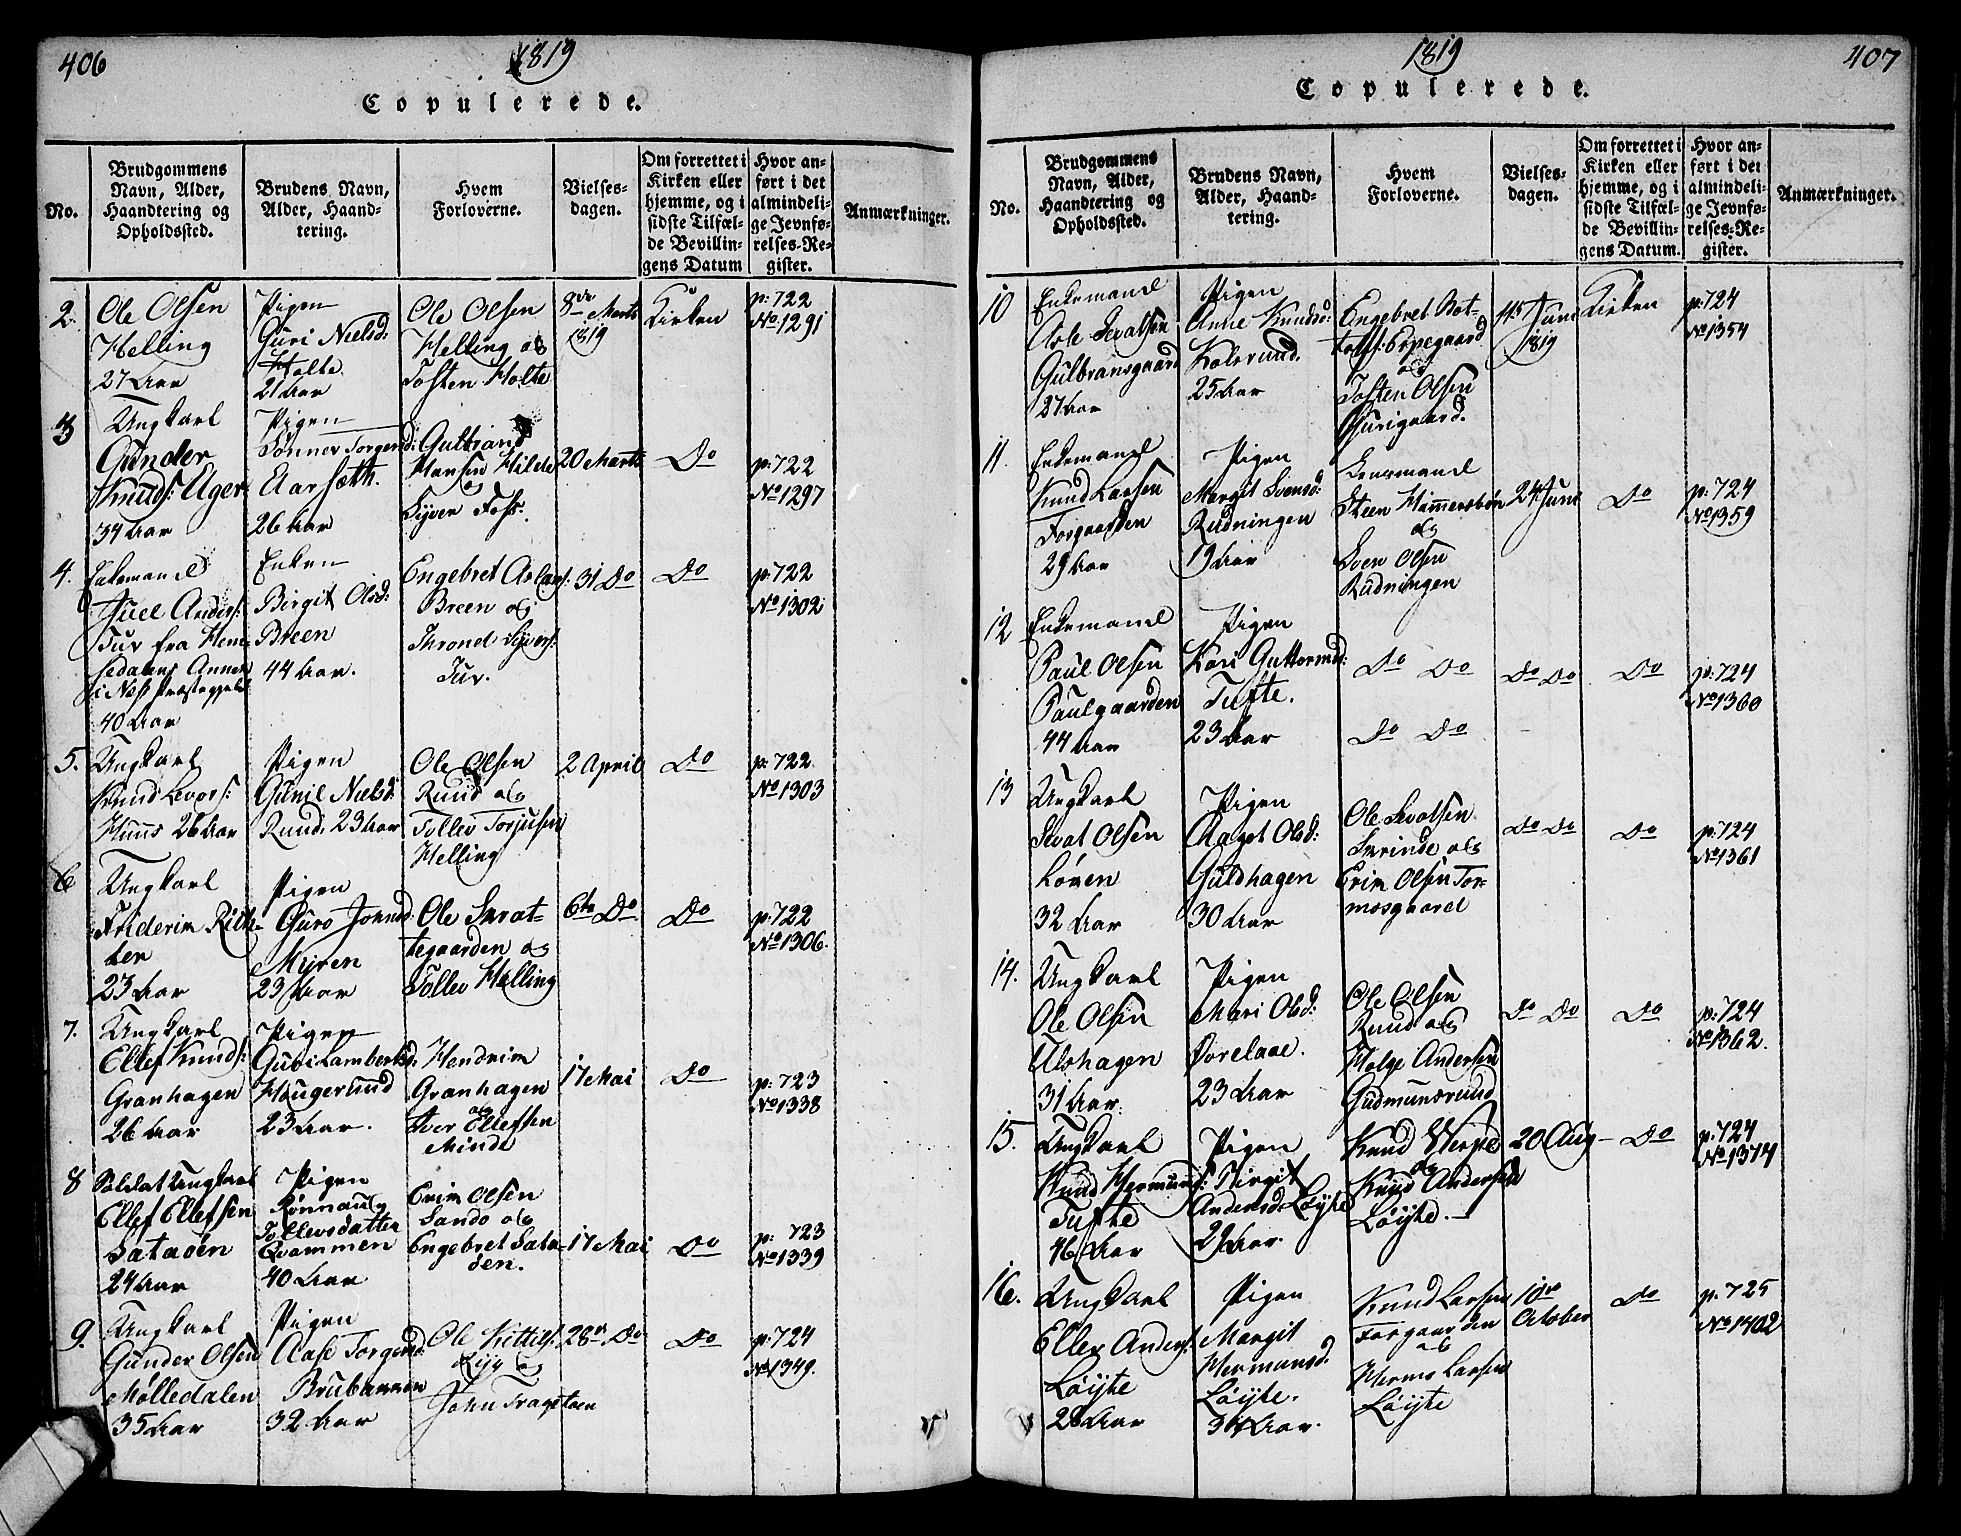 406
1819
Copulerede.
No.
Brudgommens
Navn, Alder,
Haandtering og
Opholdssted.
Brudens Navn,
Alder, Haand-
tering.
Hvem
Forloverne.
Vielses-
dagen.
Om forrettet i
Kirken eller
hjemme, og i
sidste Tilfæl-
de Bevillin-
gens Datum
Hvor an-
ført i det
almindeli-
ge Jevnfø-
relses-Re-
gister.
Anmærkninger.
2.
Ole Olsen
Helling
27 Aar
Pigen
Guri Nielsd:
Holte
21 Aar
Ole Olsen
Helling og
Tosten Holte
8de Marts
1819
Kirken
p: 722
No 1291
3
Ungkarl
Gunder
Knuds: Ager
34 Aar
Pigen
Sønnev Torgersd:
Aarsæth.
26 Aar
Gulbrand
Hansen Hilde
og
Syver Foss.
20 Marts
Do
p: 722
No 1297
4.
Enkemand
Juel Anders:
Tuv fra Hem-
sedalens Annex
i Ness Præstegjeld
40 Aar
Enken
Birgit Olsd:
Breen
44 Aar.
Engebret Aslags:
Breen og
Thrond Syvers:
Tuv.
31 Do
Do
p: 722
No 1302
5.
Ungkarl
Knud Levors:
Huus 26 Aar
Pigen
Gunil Nielsd:
Ruud 23 Aar
Ole Olsen
Ruud og
Tollev Torjusen
Helling
2 April
Do
p: 722
No 1303
6
Ungkarl
Friderik Rich-
ter
23 Aar
Pigen
Guro Jonsd:
Myren
23 Aar
Ole Skrat-
tegaarden og
Tollev Helling
6te Do
Do
p: 722
No 1306.
7.
Ungkarl
Ellef Knuds:
Granhagen
26 Aar
Pigen
Guri Lambertsd:
Haugerund
23 Aar.
Hendrik
Granhagen
og
Iver Ellefsen
Minde
17 Mai
Do
p: 723
No 1338
8
Soldat Ungkarl
Ellef Ellefsen
Sataøen
24 Aar
Pigen
Rønnaug
Tollevsdatter
Qvammen
40 Aar
Erik Olsen
Sando og
Engebret Sata-
øen.
17 Mai
Do
p: 723
No 1339
9.
Ungkarl
Gunder Olsen
Mølledalen
35 Aar
Pigen
Aase Torgersd:
Brubakken
32 Aar
Ole Kittils:
Ryg og
John Trageteen
28de Do
Do
p: 724
No 1349.
1819
407
Copulerede.
No.
Brudgommens
Navn, Alder,
Haandtering og
Opholdssted.
Brudens Navn,
Alder, Haand-
tering.
Hvem
Forloverne.
Vielses-
dagen.
Om forrettet i
Kirken eller
hjemme, og i
sidste Tilfæl-
de Bevillin-
gens Datum.
Hvor an-
ført i det
almindeli-
ge Jevnfø-
relses-Re-
gister.
Anmærkninger.
10
Enkemand
Asle Sevatsen
Gulbransgaard
27 Aar
Pigen
Anne Knudsd:
Kolsrund.
25 Aar
Engebret Bot-
tolfs: Espegaard
og
Tosten Olsen
Gurigaard.
15 Juni
1819
Kirken
p: 724
No 1354
11.
Enkemand
Knud Larsen
Torgaarden
29 Aar
Pigen
Margit Svensd:
Rudningen
19 Aar
Lensmand
Steen Hammersbøn
og
Sven Olsen
Rudningen
24 Juni
Do
p: 724
No 1359
12
Enkemand
Paul Olsen
Paulgaarden
44 Aar
Pigen
Kari Guttormsd:
Tufte.
23 Aar
Do Do
Do Do
Do Do
Do
p: 724
No 1360
13
Ungkarl
Sevat Olsen
Løken
32 Aar
Pigen
Raget Olsd:
Guldhagen
30 Aar
Ole Sevatsen
Skrinde og
Erik Olsen Tor-
mosgaard
Do Do
Do
p: 724
No 1361
14.
Ungkarl
Ole Olsen
Ulshagen
31 Aar.
Pigen
Mari Olsd:
Dørelaae.
23 Aar
Ole Olsen
Ruud og
Helge Andersen
Gudmunsrund
Do Do
Do
p: 724
No 1362.
15.
Ungkarl
Knud Hermunds:
Tufte
46 Aar
Pigen
Birgit
Andersd. Løyte
29 Aar.
Knud Werpe
og
Knud Andersen
Løyte.
20 Aug
Do
p: 724
No 1374
16.
Ungkarl
Ellev Anders:
Løyte
28 Aar
Pigen
Margit
Hermansd.
Løyte.
34 Aar.
Knud Larsen
Torgaarden
og
Herms Larsen
Løyte
10de
October
Do
p: 725
No 1402